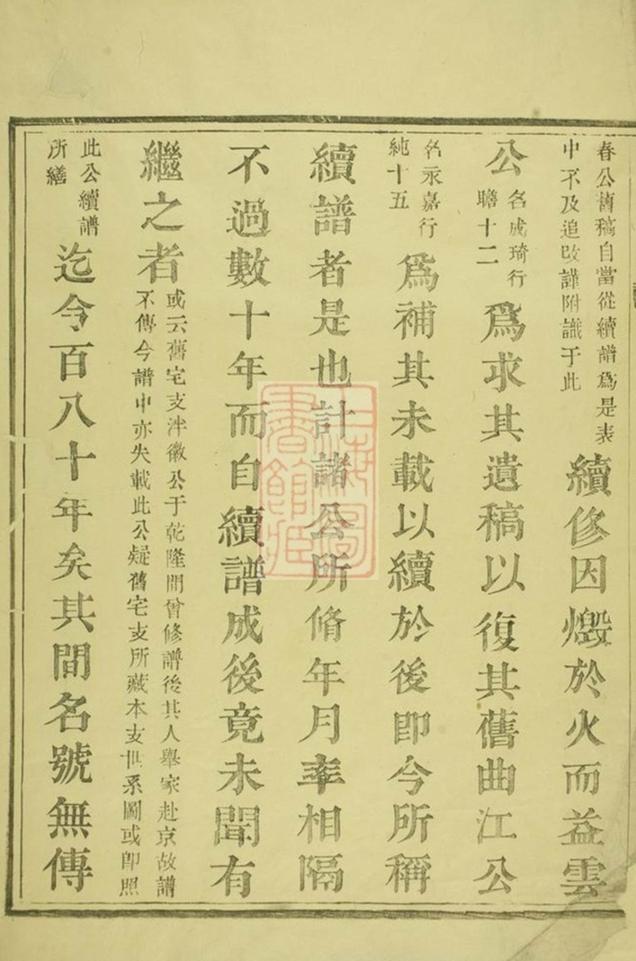 春公舊稿自當從續譜爲是表
中不及追改謹附識于此
續修因燬於火而益雲
公
名成琦行
瞻十二
爲求其遺稿以復其舊曲江公
名永嘉行
純十五
爲補其未載以續於後即今所稱
續譜者是也計諸公所脩年月率相隔
不過數十年而自續譜成後竟未聞有
繼之者
或云舊宅支泮徽公于乾隆間曾修譜後其人舉家赴京故譜
不傳今譜中亦失載此公疑舊宅支所藏本支世系圖或即照
此公續譜
所繕
迄今百八十年矣其間名號無傳